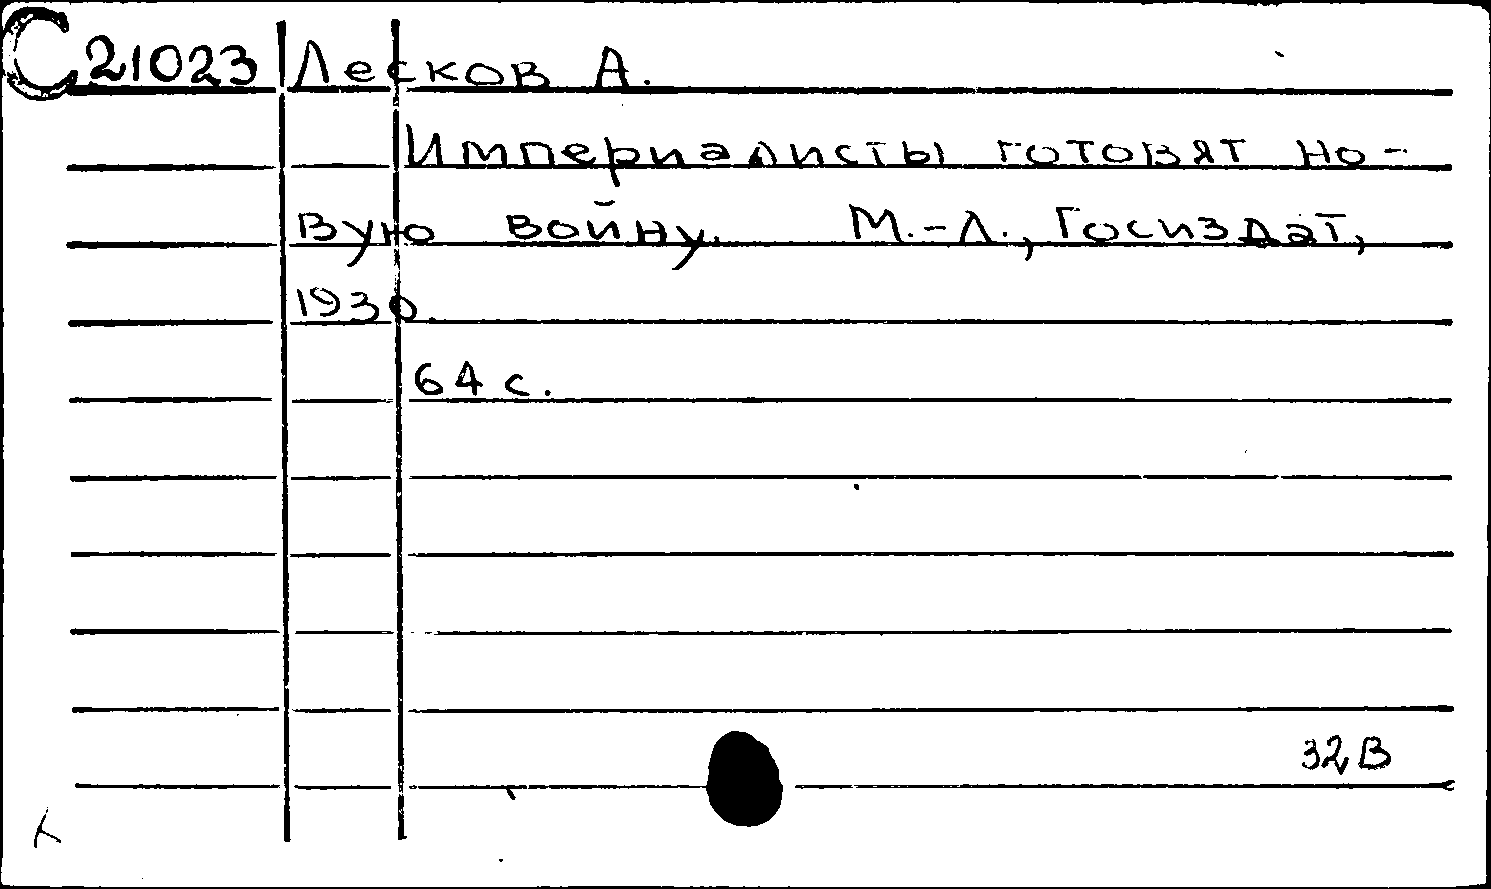 С 21023 Лесков А.
Империалисты готовят но-
вую войну. М.-Л., Госиздат,
1930.
64 с.
32В